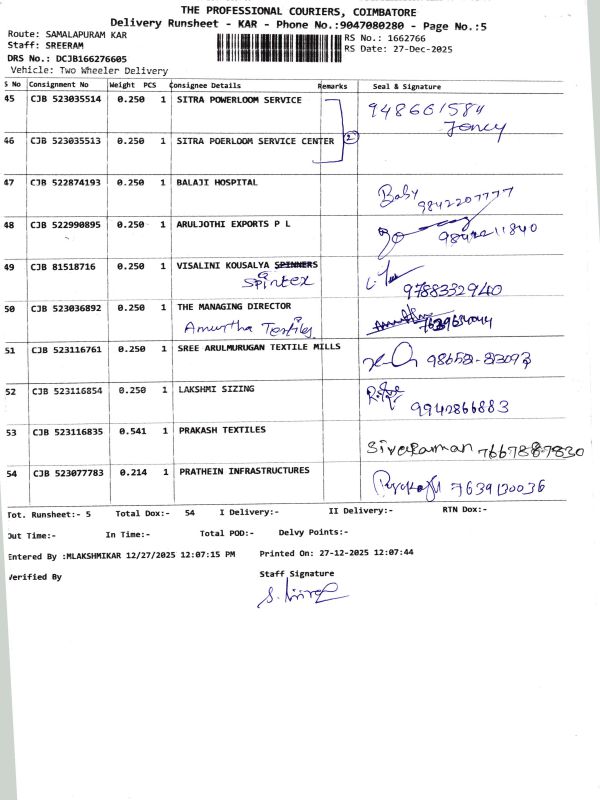 THE PROFESSIONAL COURIERS, COIMBATORE
Delivery Runsheet - KAR - Phone No.:9047080280 - Page No.:5
Route: SAMALAPURAM KAR
RS No.: 1662766
Staff: SREERAM
RS Date: 27-Dec-2025
DRS No.: DCJB166276605
Vehicle: Two Wheeler Delivery
S No Consignment No Weight PCS Consignee Details Remarks Seal & Signature
45 CJB 523035514 0.250 1 SITRA POWERLOOM SERVICE
Jency
46 CJB 523035513 0.250 1 SITRA POERLOOM SERVICE CENTER 2
47 CJB 522874193 0.250 1 BALAJI HOSPITAL
Baby 9842207777
48 CJB 522990895 0.250 1 ARULJOTHI EXPORTS P L
49 CJB 81518716 0.250 1 VISALINI KOUSALYA SPINNERS
Spintex 9788332940
50 CJB 523036892 0.250 1 THE MANAGING DIRECTOR
Amurtha Textiles
51 CJB 523116761 0.250 1 SREE ARULMURUGAN TEXTILE MILLS
98658-83093
52 CJB 523116854 0.250 1 LAKSHMI SIZING
9942866883
53 CJB 523116835 0.541 1 PRAKASH TEXTILES
Sivaraman
54 CJB 523077783 0.214 1 PRATHEIN INFRASTRUCTURES
7639130036
Tot. Runsheet:- 5 Total Dox:- 54 I Delivery:- II Delivery:- RTN Dox:-
Out Time:- In Time:- Total POD:- Delvy Points:-
Entered By :MLAKSHMIKAR 12/27/2025 12:07:15 PM Printed On: 27-12-2025 12:07:44
Verified By Staff Signature